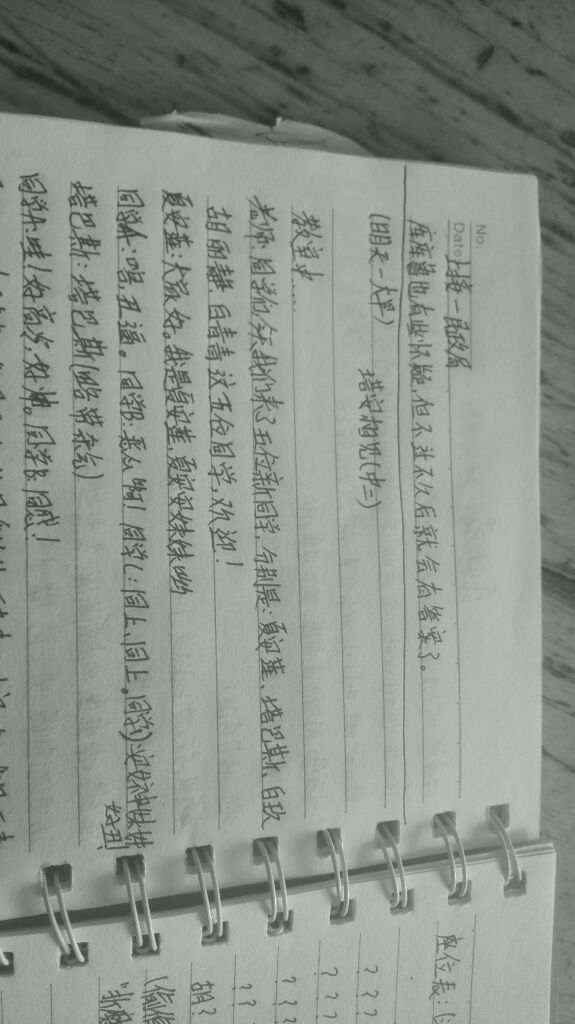 No.
Date
上接一部政局
库库鲁也有些怀疑,但不过不久后就会有答案了。
(明天一大早)
塔安相见(中二)
教室中....
老师:同学们,今天我们来了五位新同学,分别是:夏安莲、塔巴斯、白玖
胡丽静 白青青 这五位同学,欢迎!
夏安莲:大家好。我是夏安莲,夏安安妹妹哟
同学A:喵,丑逼。同学B:恶心啊!同学C:同上、同上。同学D:安女神妹妹
好丑!
塔巴斯:塔巴斯(略带杀气)
同学A:哇!好高次好帅。同学B:同感!
座位表:
? ? ?
? ? ?
? ? ?
? ?
胡?